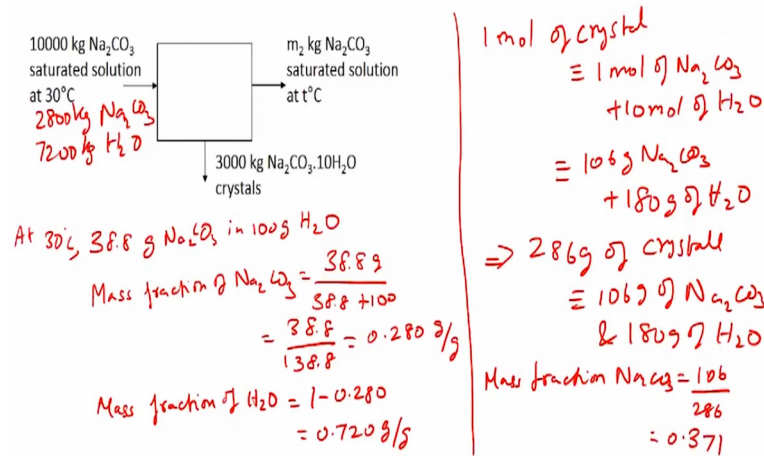 10000 kg Na₂CO₃
saturated solution
at 30°C
2800kg Na₂CO₃
7200 kg H₂O
m₂ kg Na₂CO₃
saturated solution
at t°C
3000 kg Na₂CO₃.10H₂O
crystals
At 30°C, 38.8 g Na₂CO₃ in 100g H₂O
Mass fraction of Na₂CO₃ = 38.8 g / 38.8 + 100
= 38.8 / 138.8 = 0.280 g/g
Mass fraction of H₂O = 1 - 0.280
= 0.720 g/g
1 mol of crystal
≡ 1 mol of Na₂CO₃
+10mol of H₂O
≡ 106g Na₂CO₃
+180g of H₂O
⇒ 286g of crystall
≡ 106g of Na₂CO₃
& 180g of H₂O
Mass fraction Na₂CO₃ = 106 / 286
= 0.371